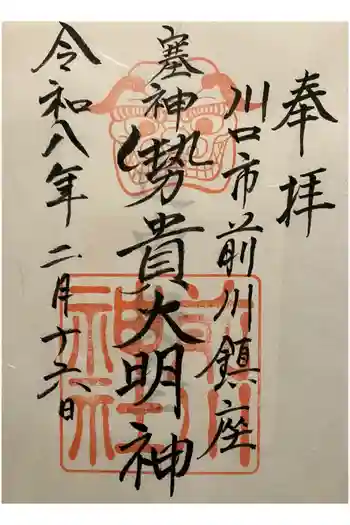 奉拝
川口市前川鎮座
塞神
勢貴大明神
令和八年二月十六日